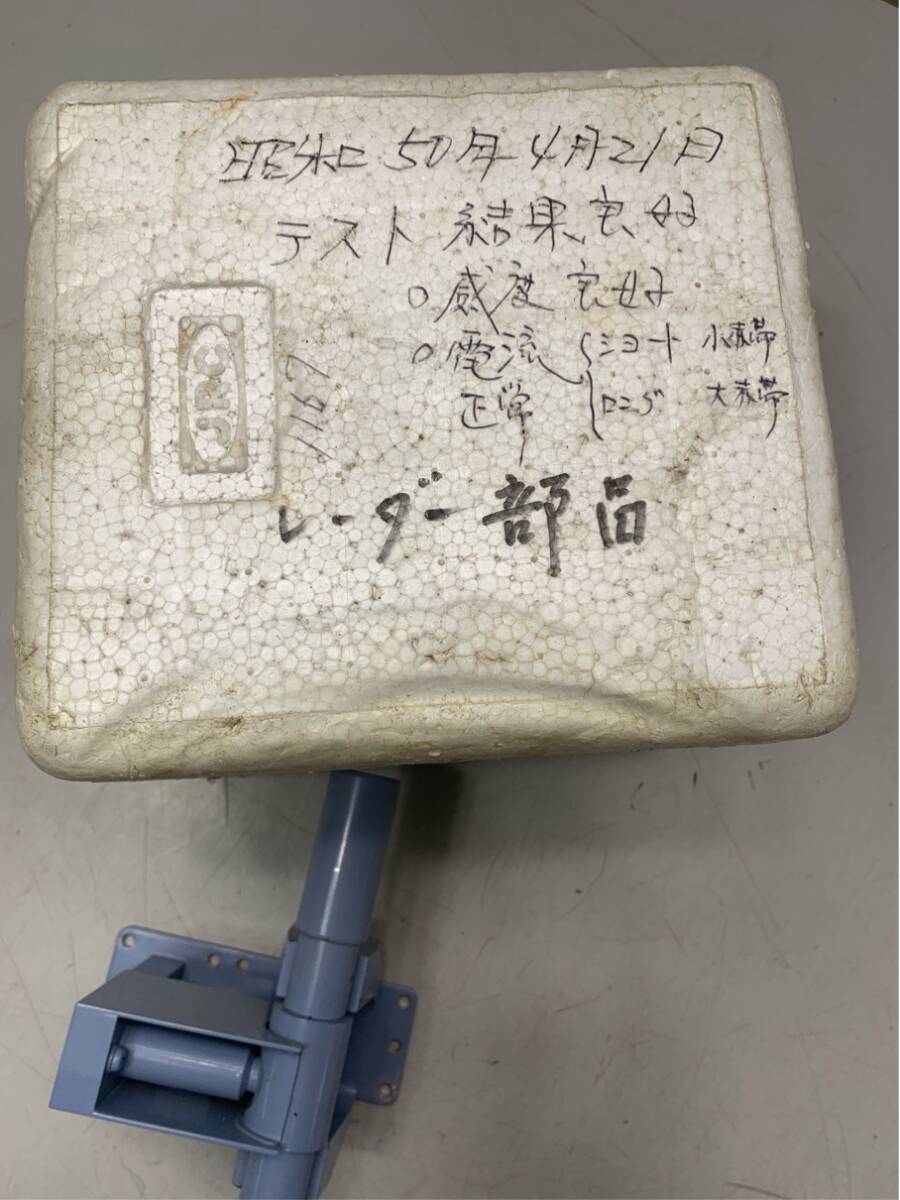 昭和50年4月21日
テスト結果良好
○感度良好
○電流 ショート 小赤帯
正常 ロング 大赤帯
JRC
1167
レーダー部品